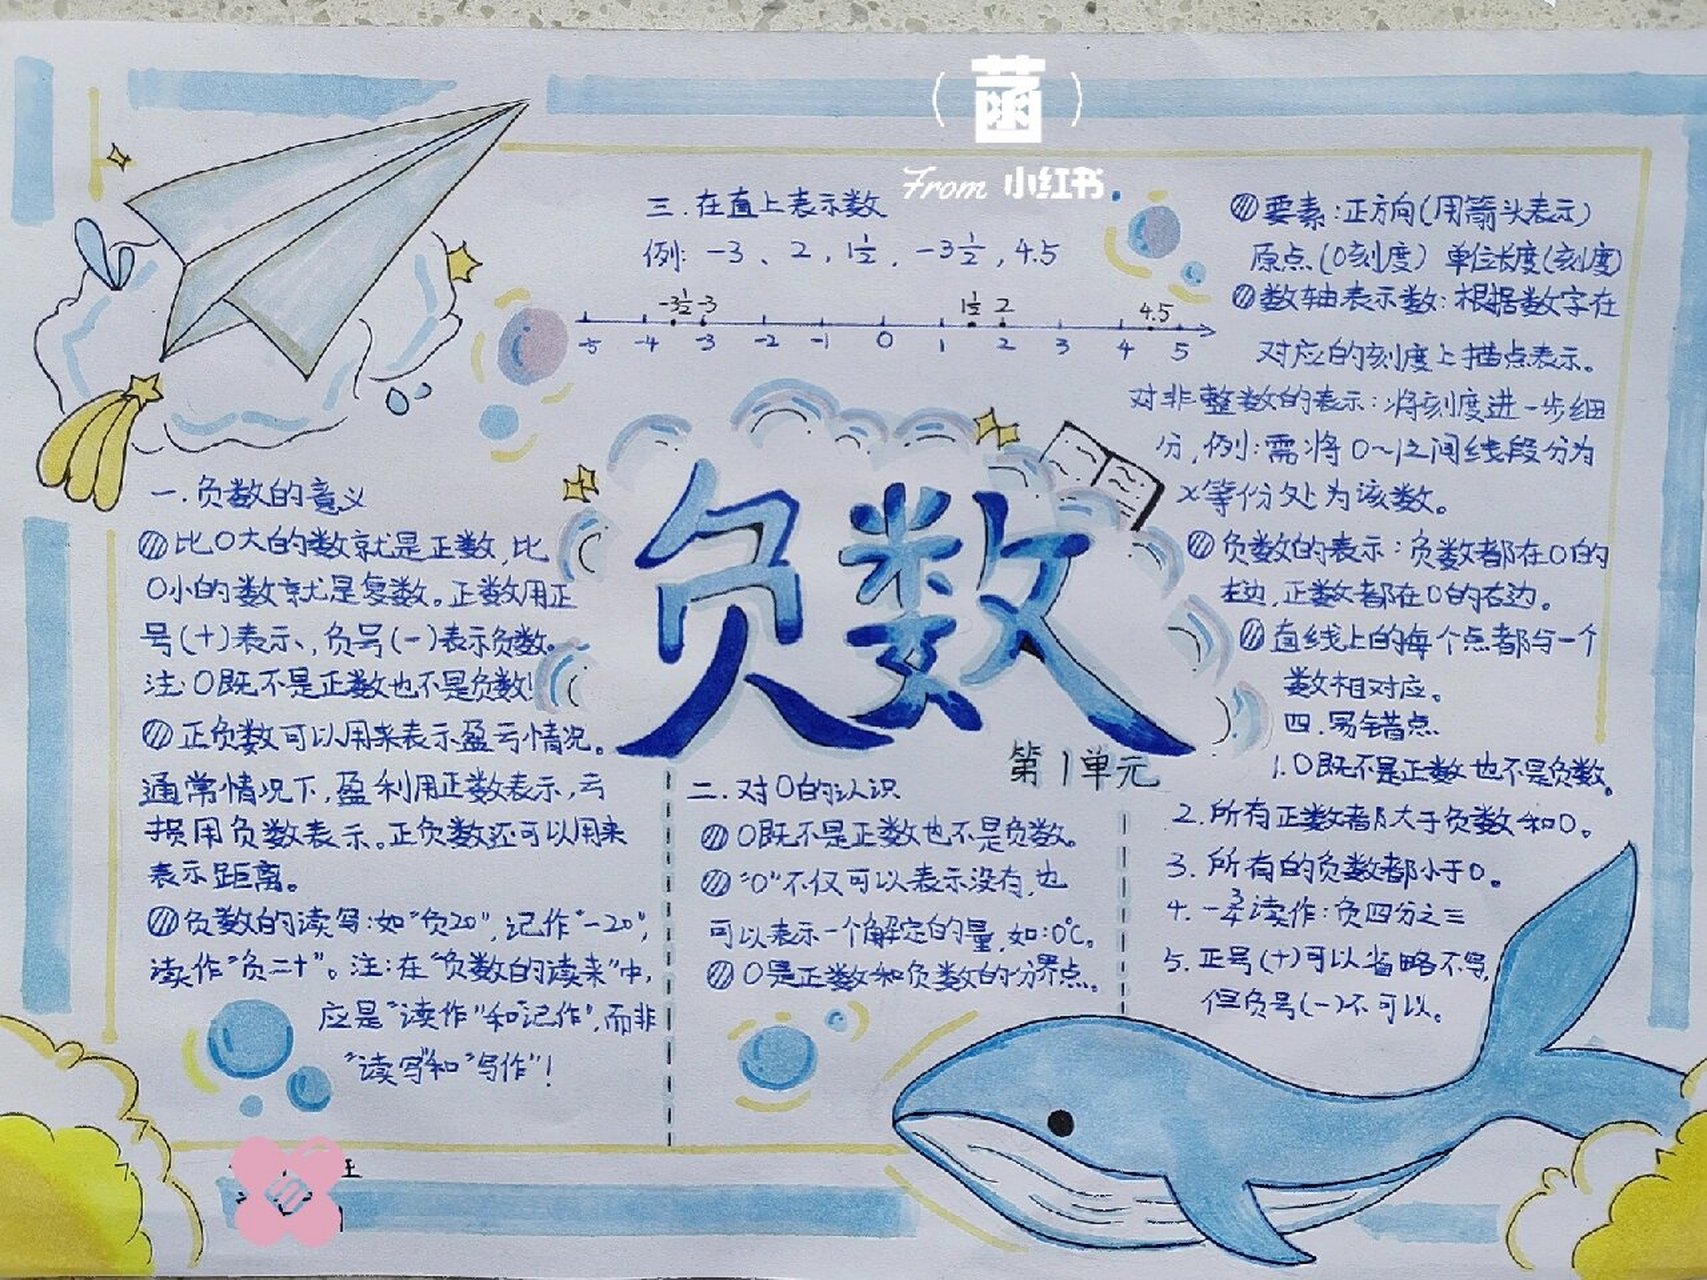 菡
From 小红书
三.在直上表示数
例: -3、2, 1½, -3½, 4.5
-3½ -3 1½ 2 4.5
-5 -4 -3 -2 -1 0 1 2 3 4 5
要素:正方向(用箭头表示)
原点(0刻度) 单位长度(刻度)
数轴表示数:根据数字在
对应的刻度上描点表示。
对非整数的表示:将刻度进一步细
分,例:需将0~1之间线段分为
x等份处为该数。
负数的表示:负数都在0的
左边,正数都在0的右边。
直线上的每个点都与一个
数相对应。
四.易错点
1.0既不是正数也不是负数。
2.所有正数都大于负数和0。
3.所有的负数都小于0。
4.-¾读作:负四分之三
5.正号(+)可以省略不写,
但负号(-)不可以。
负数
第1单元
一.负数的意义
比0大的数就是正数,比
0小的数就是复数。正数用正
号(+)表示,负号(-)表示负数。
注:0既不是正数也不是负数!
正负数可以用来表示盈亏情况。
通常情况下,盈利用正数表示,亏
损用负数表示。正负数还可以用来
表示距离。
负数的读写:如"负20",记作"-20",
读作"负二十"。注:在"负数的读来"中,
应是"读作"和"记作",而非
"读写"和"写作"!
二.对0的认识
0既不是正数也不是负数。
"0"不仅可以表示没有,也
可以表示一个解定的量,如:0℃。
0是正数和负数的分界点。